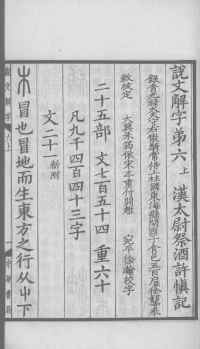 說文解字弟六上 漢太尉祭酒許慎記
銀青光祿大夫守右散騎常侍上柱國東海縣開國子食邑五百戶臣徐鉉等奉
敕校定
二十五部 文七百五十四 重六十
凡九千四百四十三字
文二十一新附
木 冒也冒地而生東方之行从屮下